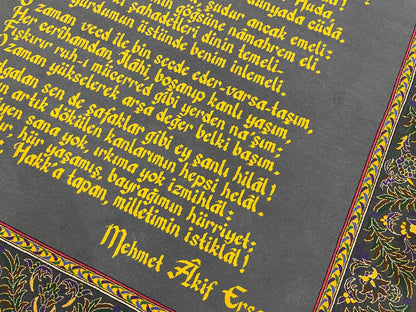 dünyada cüdâ.
şudur ancak emeli:
göğsüne nâmahrem eli.
şahadetleri dinin temeli.
yurdumun üstünde benim inlemeli.
zaman, vecd ile bin secde eder-varsa-taşım,
Her cerîhamdan İlâhi, boşanıp kanlı yaşım,
Fışkırır ruh-ı mücerred gibi yerden na'şım.
zaman yükselerek arşa değer belki başım.
dalgalan sen de şafaklar gibi ey şanlı hilâl!
artık dökülen kanlarımın hepsi helâl.
sana yok, ırkıma yok izmihlâl:
hür yaşamış, bayrağımın hürriyet;
Hakk'a tapan, milletimin istiklâl!
Mehmet Âkif